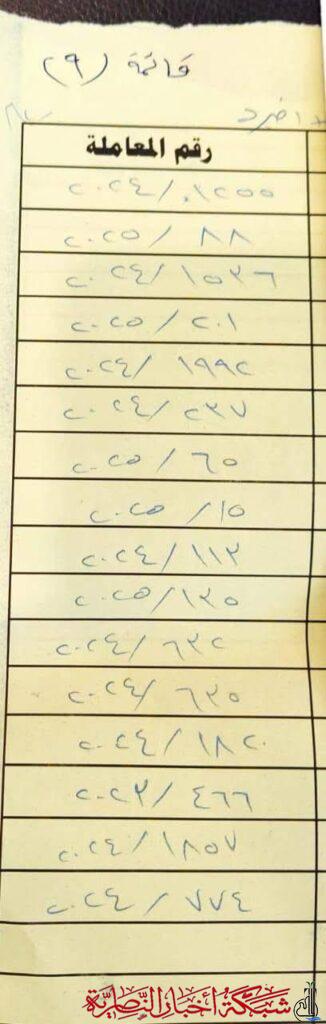 قائمة (٩)
رقم المعاملة
١٢٥٥ / ٢٠٢٤
٨٨ / ٢٠٢٥
١٥٣٦ / ٢٠٢٤
٢٠١ / ٢٠٢٥
١٩٩٢ / ٢٠٢٤
٢٣٧ / ٢٠٢٤
٦٥ / ٢٠٢٥
١٥ / ٢٠٢٥
١١٣ / ٢٠٢٤
١٣٥ / ٢٠٢٥
٦٣٢ / ٢٠٢٤
٦٣٥ / ٢٠٢٤
١٨٢٠ / ٢٠٢٤
٤٦٦ / ٢٠٢٣
١٨٥٧ / ٢٠٢٤
٧٧٤ / ٢٠٢٤
شبكة أخبار الناصرية